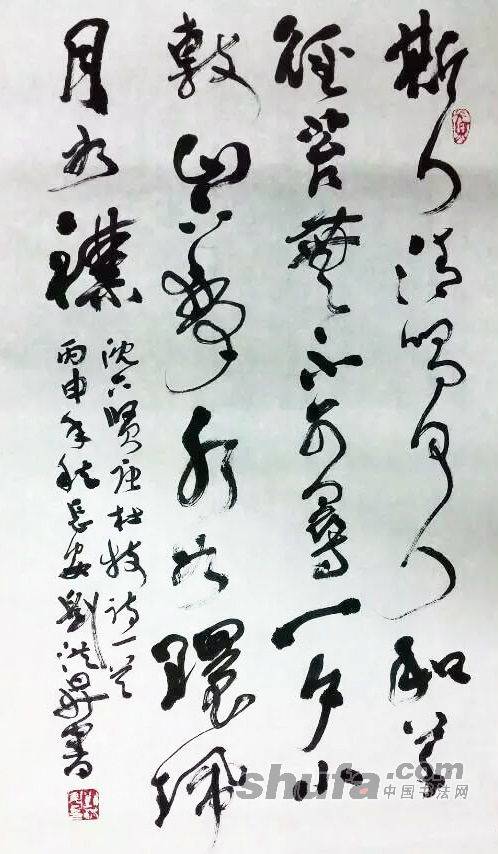 斯人清唱何人和草
徑苔蕪不可尋一夕小
敷山下夢水如環珮
月如襟
沈下贤唐杜牧诗一首
丙申年秋長安劉洪昇書
shufa.com
中国书法网